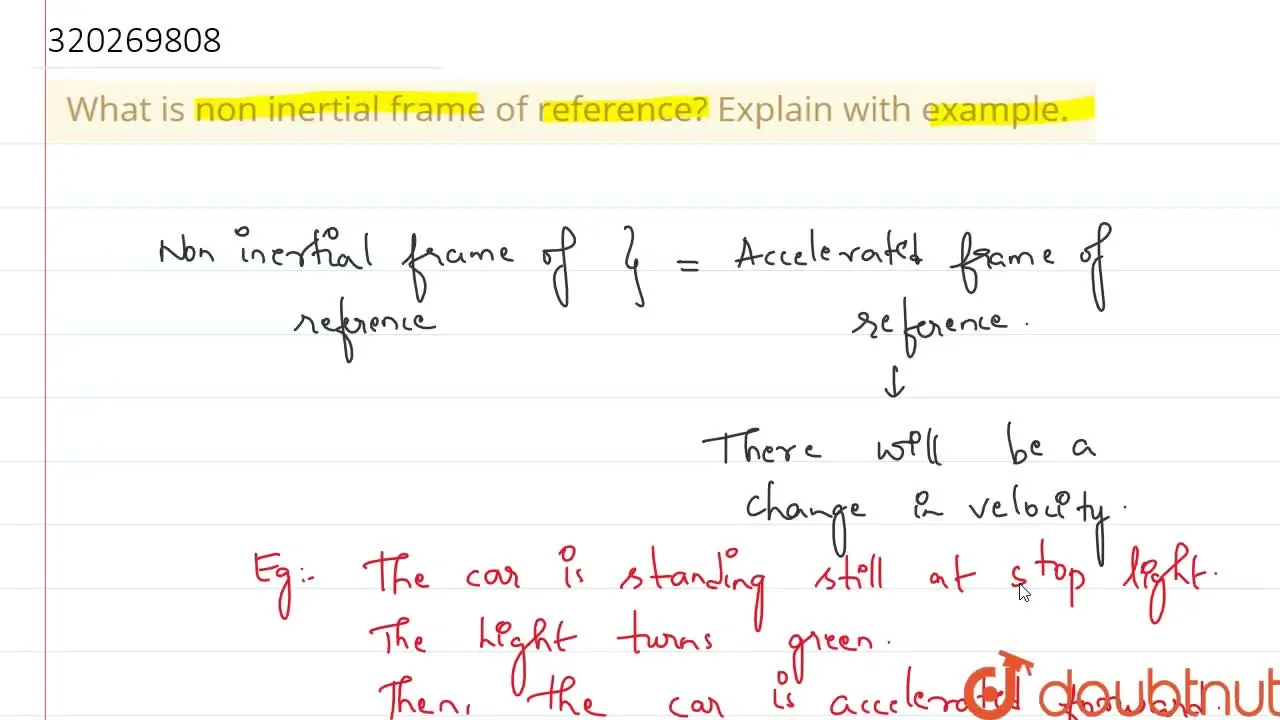 320269808
What is non inertial frame of reference? Explain with example.
Non inertial frame of } = Accelerated frame of
reference reference.
↓
There will be a
change in velocity.
Eg:- The car is standing still at stop light.
The light turns green.
Then, the car is accelerated forward
doubtnut